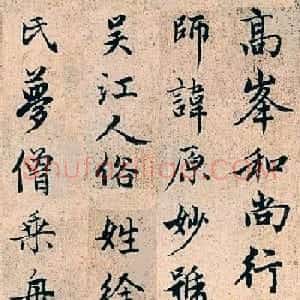 高峯和尚行
師諱原妙號
吳江人俗姓徐
氏夢僧乘舟